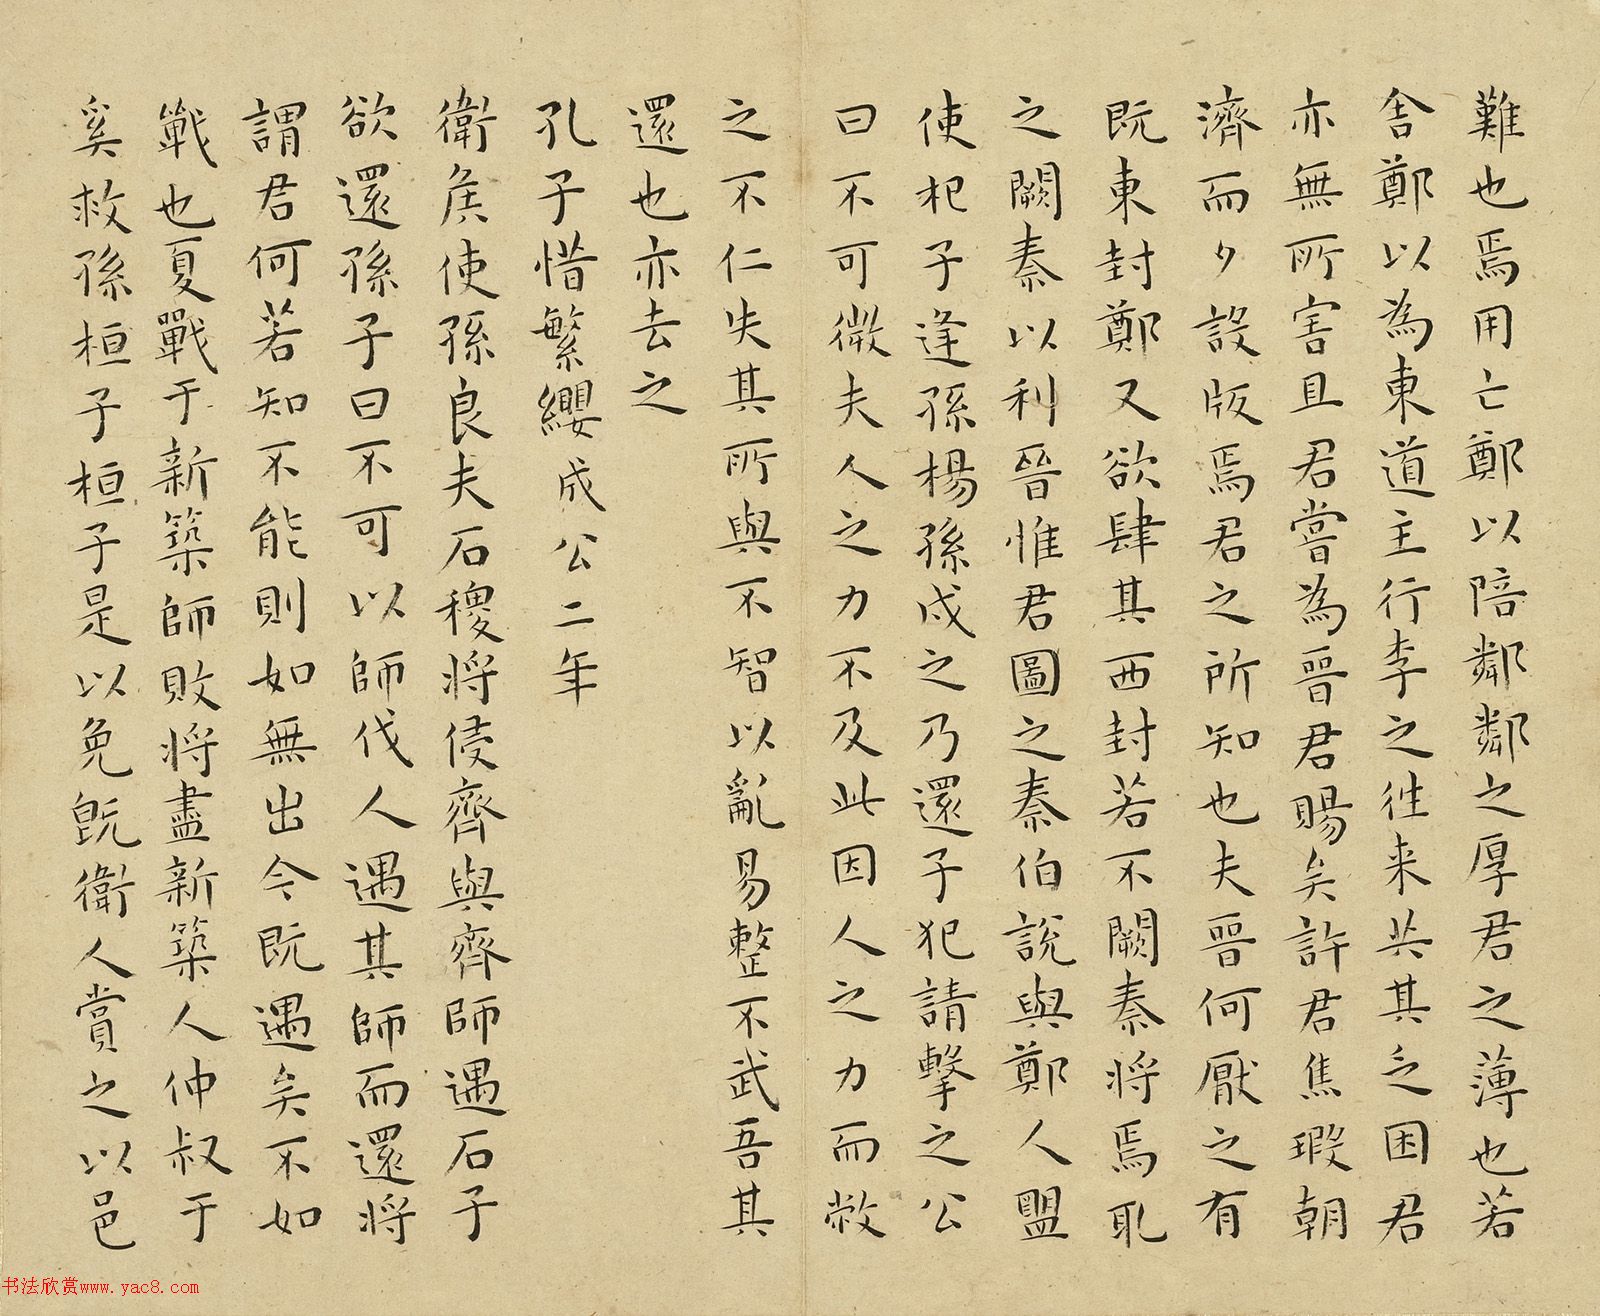 難也焉用亡鄭以陪鄰鄰之厚君之薄也若
舍鄭以為東道主行李之往来共其乏困君
亦無所害且君嘗為晉君賜矣許君焦瑕朝
濟而夕設版焉君之所知也夫晉何厭之有
既東封鄭又欲肆其西封若不闕秦將焉取
之闕秦以利晉惟君圖之秦伯說與鄭人盟
使杞子逢孫楊孫戍之乃還子犯請擊之公
曰不可微夫人之力不及此因人之力而敝
之不仁失其所與不智以亂易整不武吾其
還也亦去之
孔子惜繁纓成公二年
衛侯使孫良夫石稷將侵齊與齊師遇石子
欲還孫子曰不可以師伐人遇其師而還將
謂君何若知不能則如無出今既遇矣不如
戰也夏戰于新築師敗將盡新築人仲叔于
奚救孫桓子桓子是以免既衛人賞之以邑
书法欣赏www.yac8.com